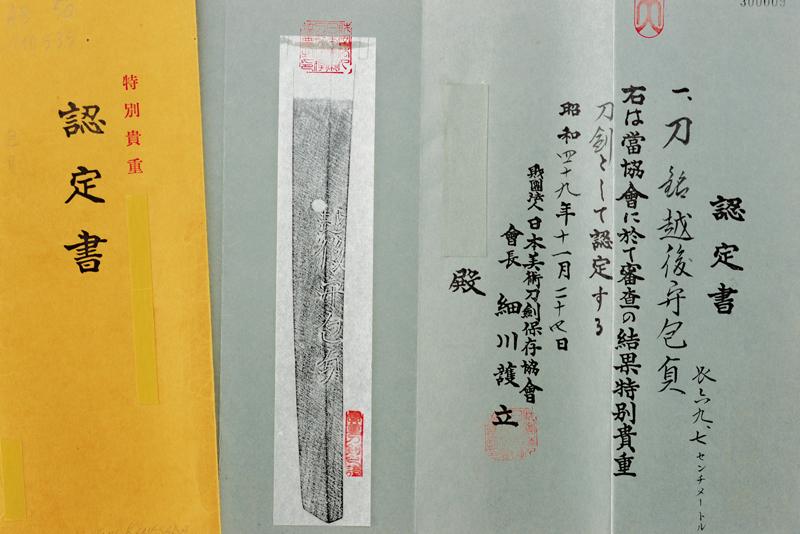 300009
認定書
一、刀 銘 越後守包貞
長六九、七センチメートル
右は當協會に於て審査の結果特別貴重
刀剣として認定する
昭和四十九年十一月二十七日
財團法人日本美術刀劍保存協會
會長 細川護立
殿
越後守包貞
特別貴重
認定書